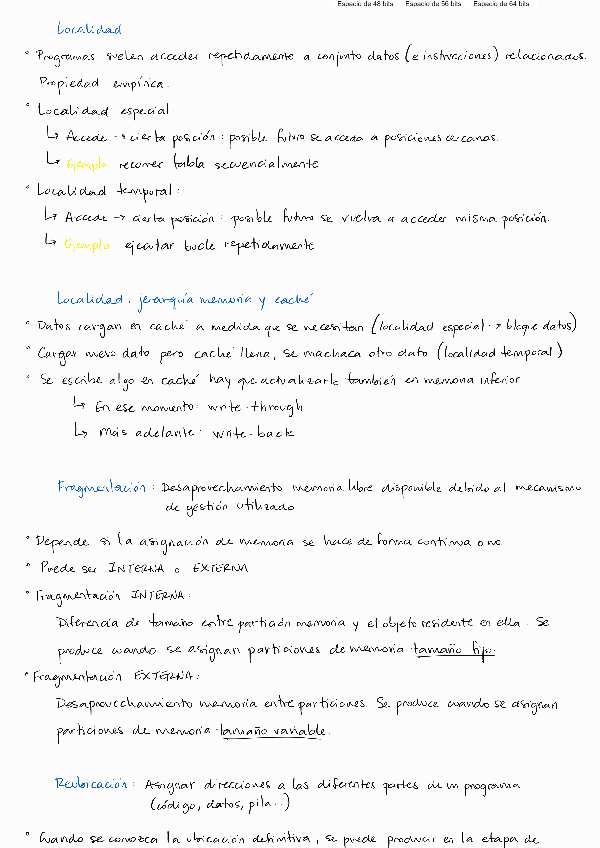 Espacio de 48 bits Espacio de 56 bits Espacio de 64 bits
Localidad
° Programas suelen acceder repetidamente a conjunto datos (e instrucciones) relacionados.
Propiedad empírica.
° Localidad especial:
↳ Accede -> cierta posición: posible futuro se acceda a posiciones cercanas.
↳ Ejemplo: recorrer tabla secuencialmente
° Localidad temporal:
↳ Accede -> cierta posición: posible futuro se vuelva a acceder misma posición.
↳ Ejemplo: ejecutar bucle repetidamente
Localidad, jerarquía memoria y caché
° Datos cargan en caché a medida que se necesitan (localidad especial -> bloque datos)
° Cargar nuevo dato pero caché llena, se machaca otro dato (localidad temporal)
° Se escribe algo en caché hay que actualizarlo también en memoria inferior
↳ En ese momento: write-through
↳ Más adelante: write-back
Fragmentación: Desaprovechamiento memoria libre disponible debido al mecanismo
de gestión utilizado
° Depende si la asignación de memoria se hace de forma continua o no
° Puede ser INTERNA o EXTERNA
° Fragmentación INTERNA:
Diferencia de tamaño entre partición memoria y el objeto residente en ella. Se
produce cuando se asignan particiones de memoria tamaño fijo.
° Fragmentación EXTERNA:
Desaprovechamiento memoria entre particiones. Se produce cuando se asignan
particiones de memoria tamaño variable.
Reubicación: Asignar direcciones a las diferentes partes de un programa
(código, datos, pila..)
° Cuando se conozca la ubicación definitiva, se puede producir en la etapa de